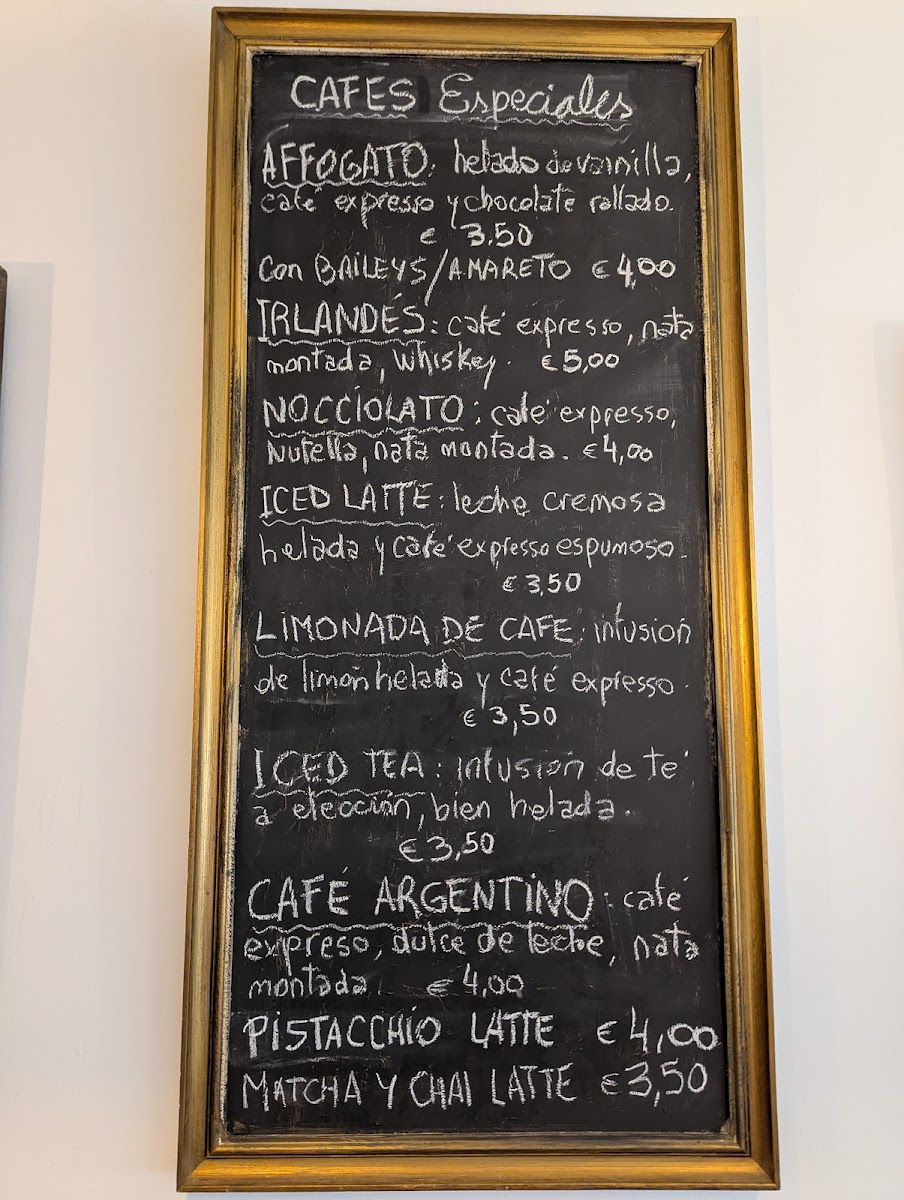 CAFES Especiales
AFFOGATO: helado de vainilla,
café expresso y chocolate rallado.
€ 3.50
con BAILEYS/AMARETO €4,00
IRLANDÉS: café expresso, nata
montada, whiskey. €5,00
NOCCIOLATO: café expresso,
Nutella, nata montada. €4,00
ICED LATTE: leche cremosa
helada y café expresso espumoso.
€3,50
LIMONADA DE CAFE: infusión
de limón helada y café expresso.
€3,50
ICED TEA: infusión de té
a elección, bien helada.
€3,50
CAFÉ ARGENTINO: café
expreso, dulce de leche, nata
montada. €4,00
PISTACCHIO LATTE €4,00
MATCHA Y CHAI LATTE €3,50